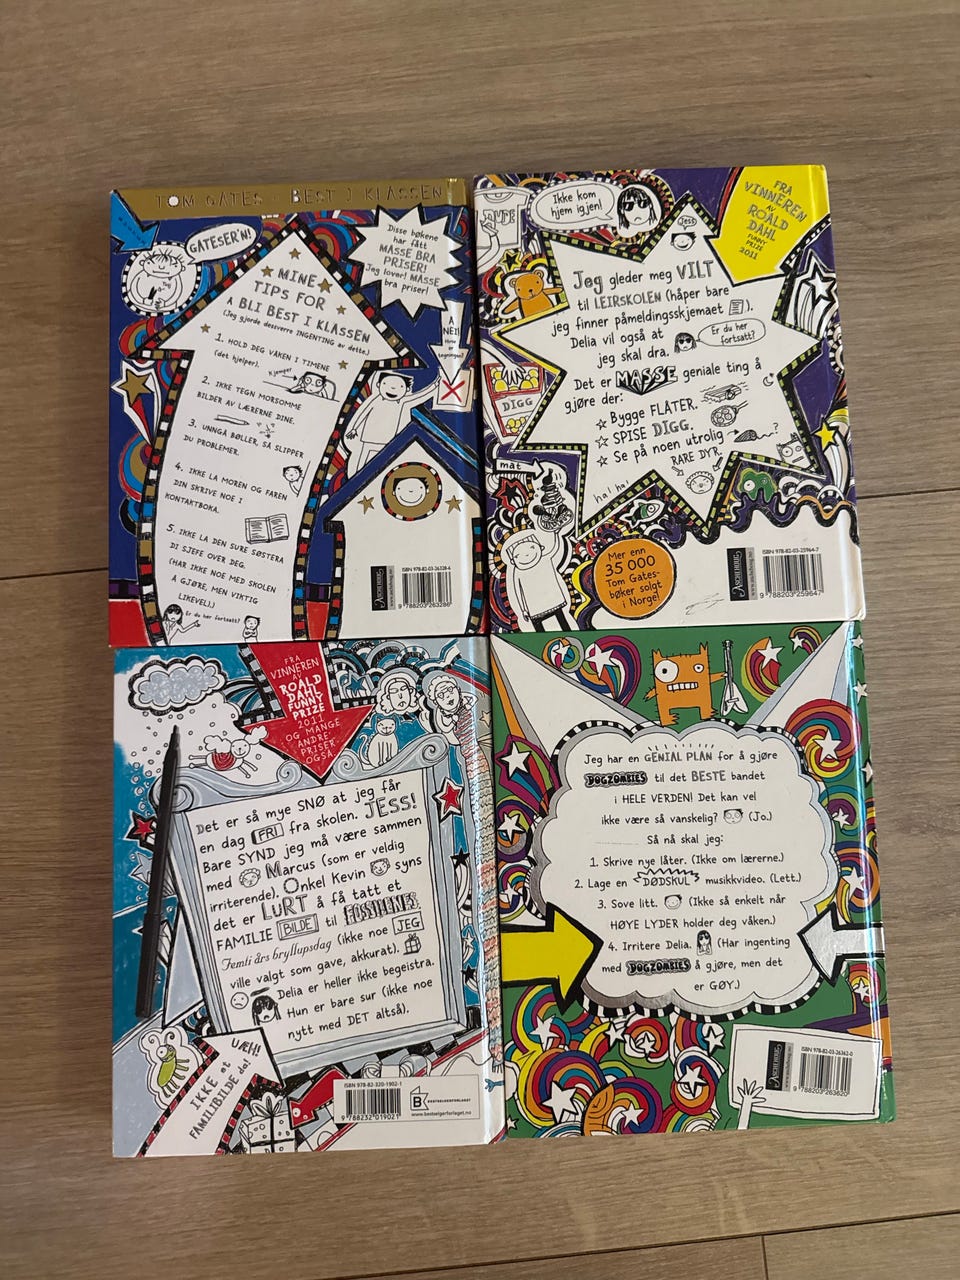 TOM GATES - BEST I KLASSEN
GATESER'N!
Disse bøkene
har fått
MASSE BRA
PRISER!
Jeg lover! MASSE
bra priser!
MINE
TIPS FOR
Å BLI BEST I KLASSEN
(Jeg gjorde dessverre INGENTING av dette.)
1. HOLD DEG VÅKEN I TIMENE
(det hjelper).
Kjenger
2. IKKE TEGN MORSOMME
BILDER AV LÆRERNE DINE.
3. UNNGÅ BØLLER, SÅ SLIPPER
DU PROBLEMER.
4. IKKE LA MOREN OG FAREN
DIN SKRIVE NOE I
KONTAKTBOKA.
5. IKKE LA DEN SURE SØSTERA
DI SJEFE OVER DEG.
(HAR IKKE NOE MED SKOLEN
Å GJØRE, MEN VIKTIG
LIKEVEL.)
Er du her fortsatt?
ISBN 978-82-03-26328-6
9 788203 263286
ASCHEHOUG
Ikke kom
hjem igjen!
Jess
FRA
VINNEREN
AV
ROALD
DAHL
FUNNY
PRIZE
2011
Jeg gleder meg VILT
til LEIRSKOLEN (håper bare
jeg finner påmeldingsskjemaet ).
Delia vil også at
jeg skal dra.
Er du her
fortsatt?
Det er MASSE geniale ting å
gjøre der:
Bygge FLÅTER.
SPISE DIGG.
Se på noen utrolig ?
RARE DYR.
DIGG
mat
ha! ha!
Mer enn
35 000
Tom Gates-
bøker solgt
i Norge!
ASCHEHOUG
ISBN 978-82-03-25964-7
9 788203 259647
FRA
VINNEREN
AV
ROALD
DAHL
FUNNY
PRIZE
2011
OG MANGE
ANDRE
PRISER
OGSÅ.
Det er så mye SNØ at jeg får
en dag FRI fra skolen. JESS!
Bare SYND jeg må være sammen
med Marcus (som er veldig
irriterende). Onkel Kevin syns
det er LURT å få tatt et
FAMILIE BILDE til FOSSILENES
Femti års bryllupsdag (ikke noe JEG
ville valgt som gave, akkurat).
Delia er heller ikke begeistra.
Hun er bare sur (ikke noe
nytt med DET altså).
UÆH!
IKKE et
FAMILIBILDE da!
ISBN 978-82-320-1902-1
9 788232 019021
B
BESTSELGERFORLAGET
www.bestselgerforlaget.no
Jeg har en GENIAL PLAN for å gjøre
DOGZOMBIES til det BESTE bandet
i HELE VERDEN! Det kan vel
ikke være så vanskelig? (Jo.)
Så nå skal jeg:
1. Skrive nye låter. (Ikke om lærerne.)
2. Lage en DØDSKUL musikkvideo. (Lett.)
3. Sove litt. (Ikke så enkelt når
HØYE LYDER holder deg våken.)
4. Irritere Delia. (Har ingenting
med DOGZOMBIES å gjøre, men det
er GØY.)
ASCHEHOUG
ISBN 978-82-03-26362-0
9 788203 263620